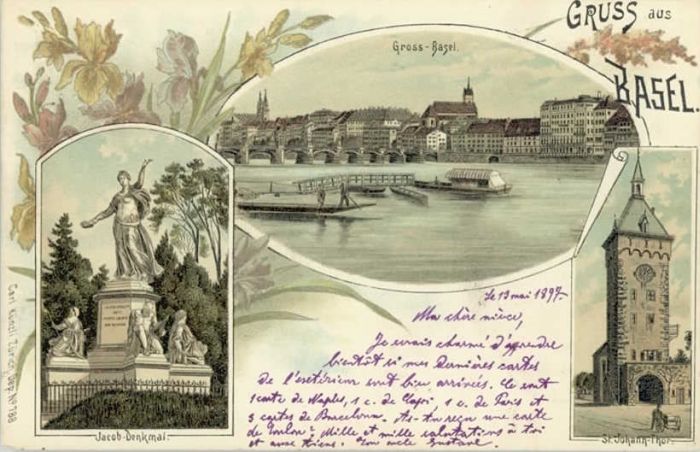 GRUSS aus
BASEL.
Gross-Basel.
Jacob-Denkmal.
St. Johann-Thor.
Carl Künzli, Zürich, Dép. No 788
Le 13 mai 1897.
Ma chère nièce,
Je serais charmé d'apprendre
bientôt si mes dernières cartes
de l'extérieur sont bien arrivées. Ce sont
1 carte de Naples, 1 c. de Capri, 1 c. de Paris et
3 cartes de Barcelona. As-tu reçu une carte
de Toulon? Mille et mille salutations à toi
et aux tiens. Ton oncle Gustave.